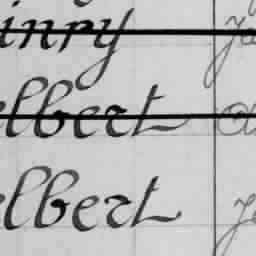 inry
elbert
elbert